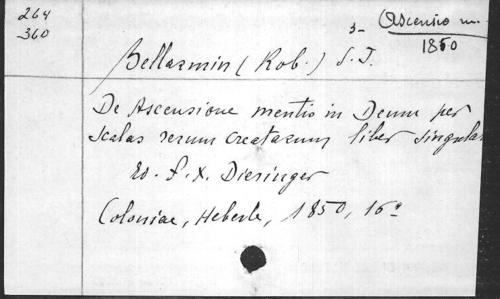 264
360
Ascensio m.
1850
Bellarmin (Rob.) S.J.
De Ascensione mentis in Deum per
scalas rerum creatarum liber singular
Ed. F. X. Dieringer
Coloniae, Heberle, 1850, 16º